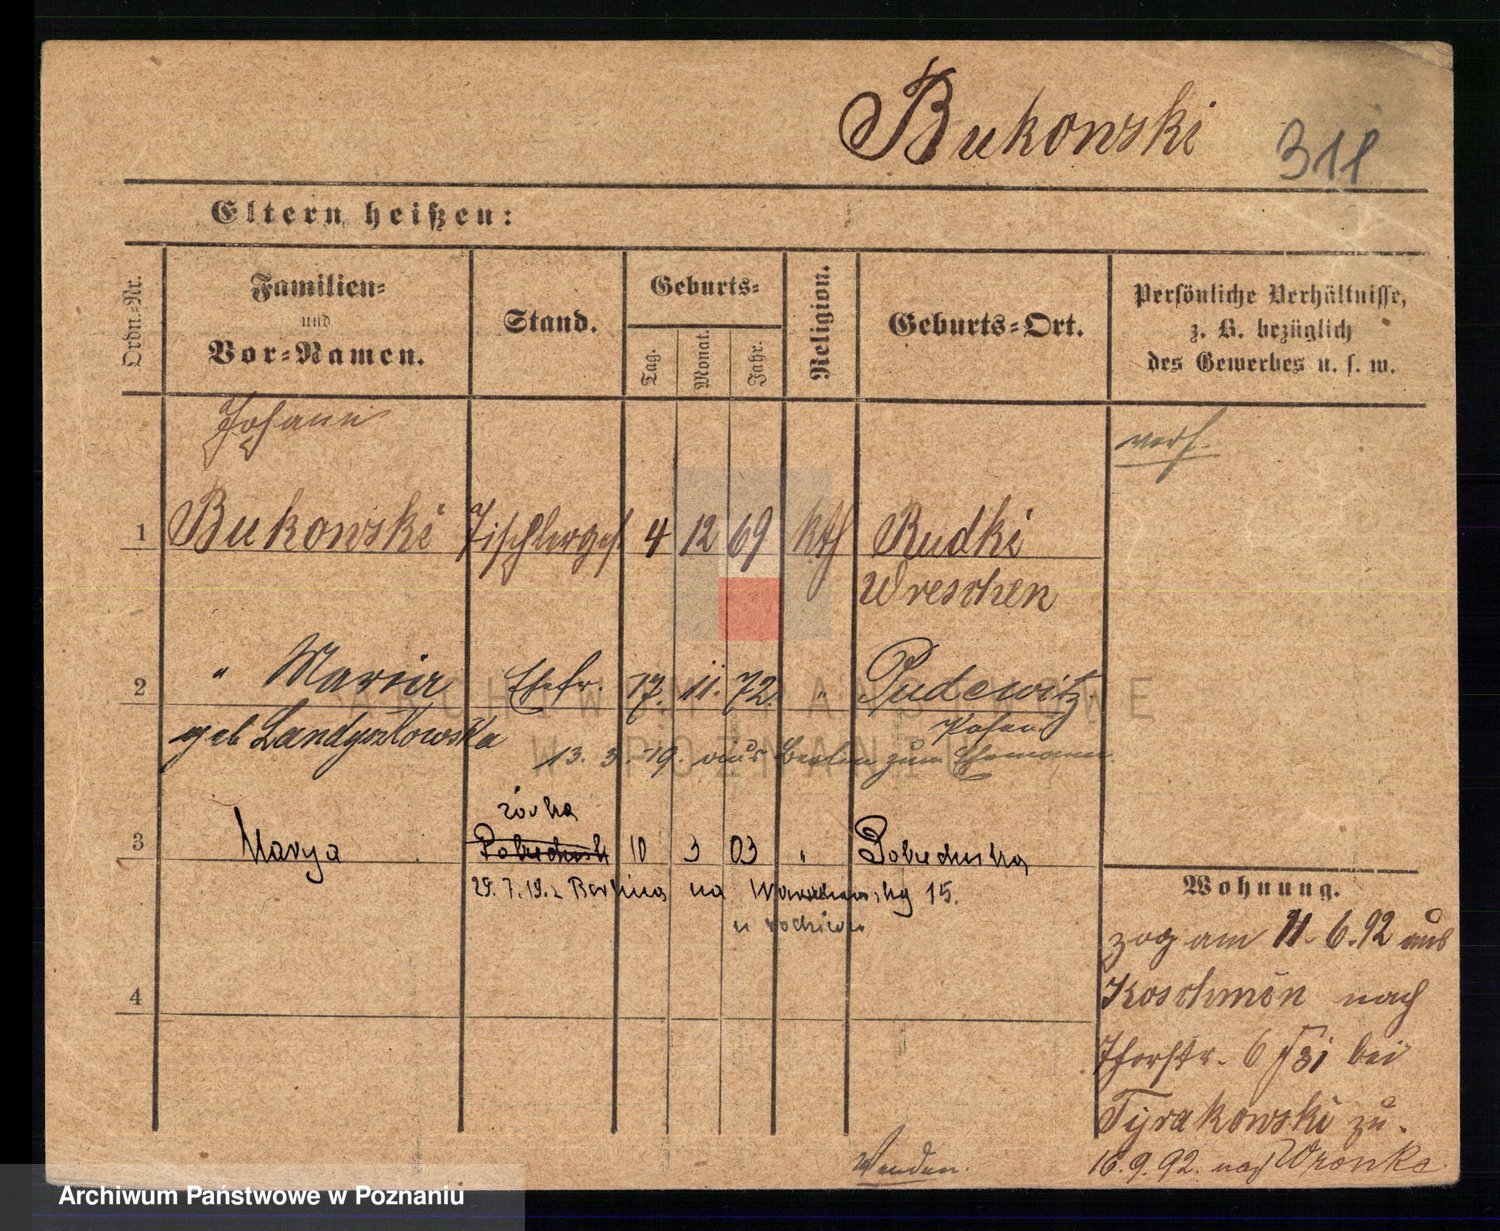 Bukowski 311
Eltern heißen:
Ordn.-Nr.
Familien-
und
Vor-Namen.
Stand.
Geburts-
Tag.
Monat.
Jahr.
Religion.
Geburts-Ort.
Persönliche Verhältnisse,
z. B. bezüglich
des Gewerbes u. s. w.
Johann
verh.
1 Bukowski Tischlerges. 4 12 69 kth Rudki
Wreschen
2 " Maria Ehefr. 17. 11. 72. " Pudewitz
geb Landgostowska Posen
13. 3. 19. aus Berlin zum Ehemann
córka
3 Marya 10 3 03 "
29. 7. 19. z Berlina na 15.
u rodziców
4
Wohnung.
zog am 11. 6. 92 aus
Koschmin nach
Thorstr. 6 bei
Tyrakowski zu.
16. 9. 92. nach Wronke
Wenden.
ARCHIWUM PAŃSTWOWE
W POZNANIU
Archiwum Państwowe w Poznaniu